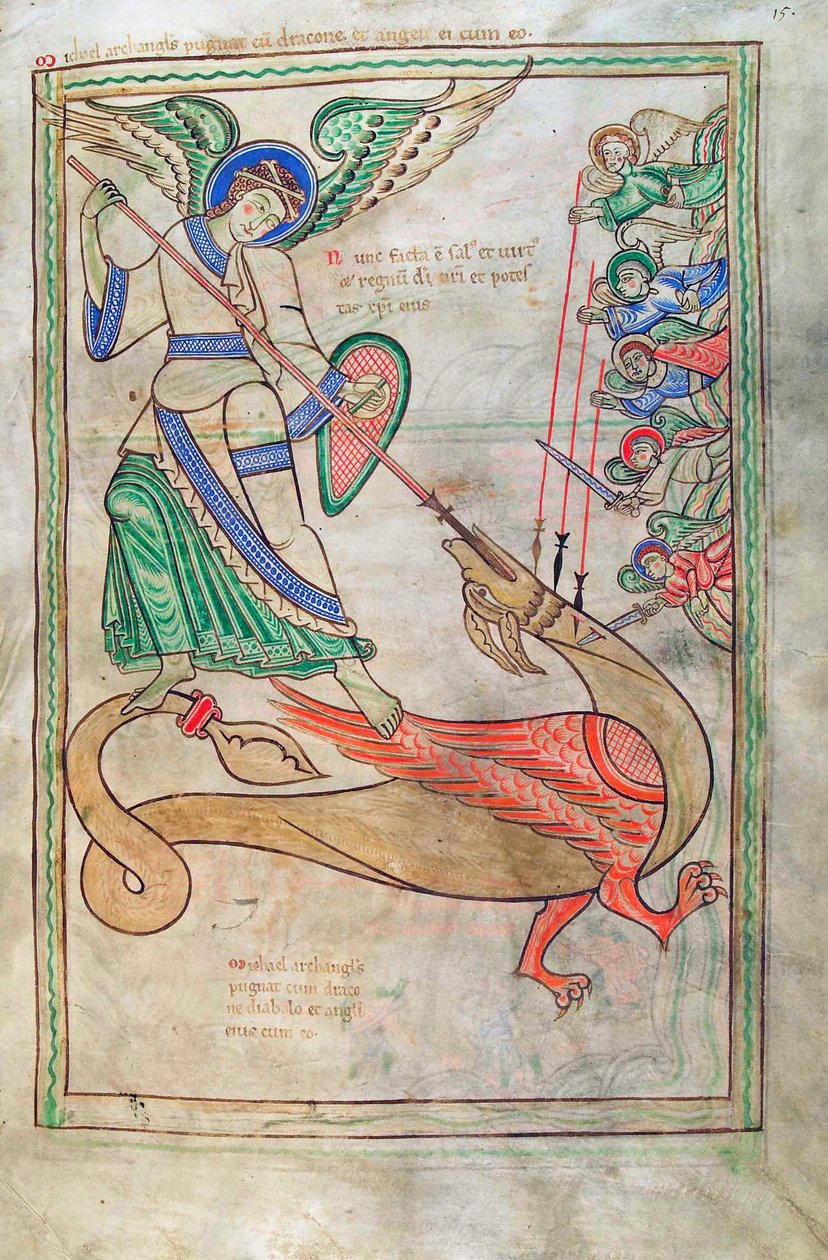 15.
Michael archangl's pugnat cū dracone. et angeli ei cum eo.
Nunc facta ē sal' et uirt'
et regnū d̄i n̄ri et potes
tas xp̄i eius
Michael archangl's
pugnat cum draco
ne diabolo et angli
eius cum eo.